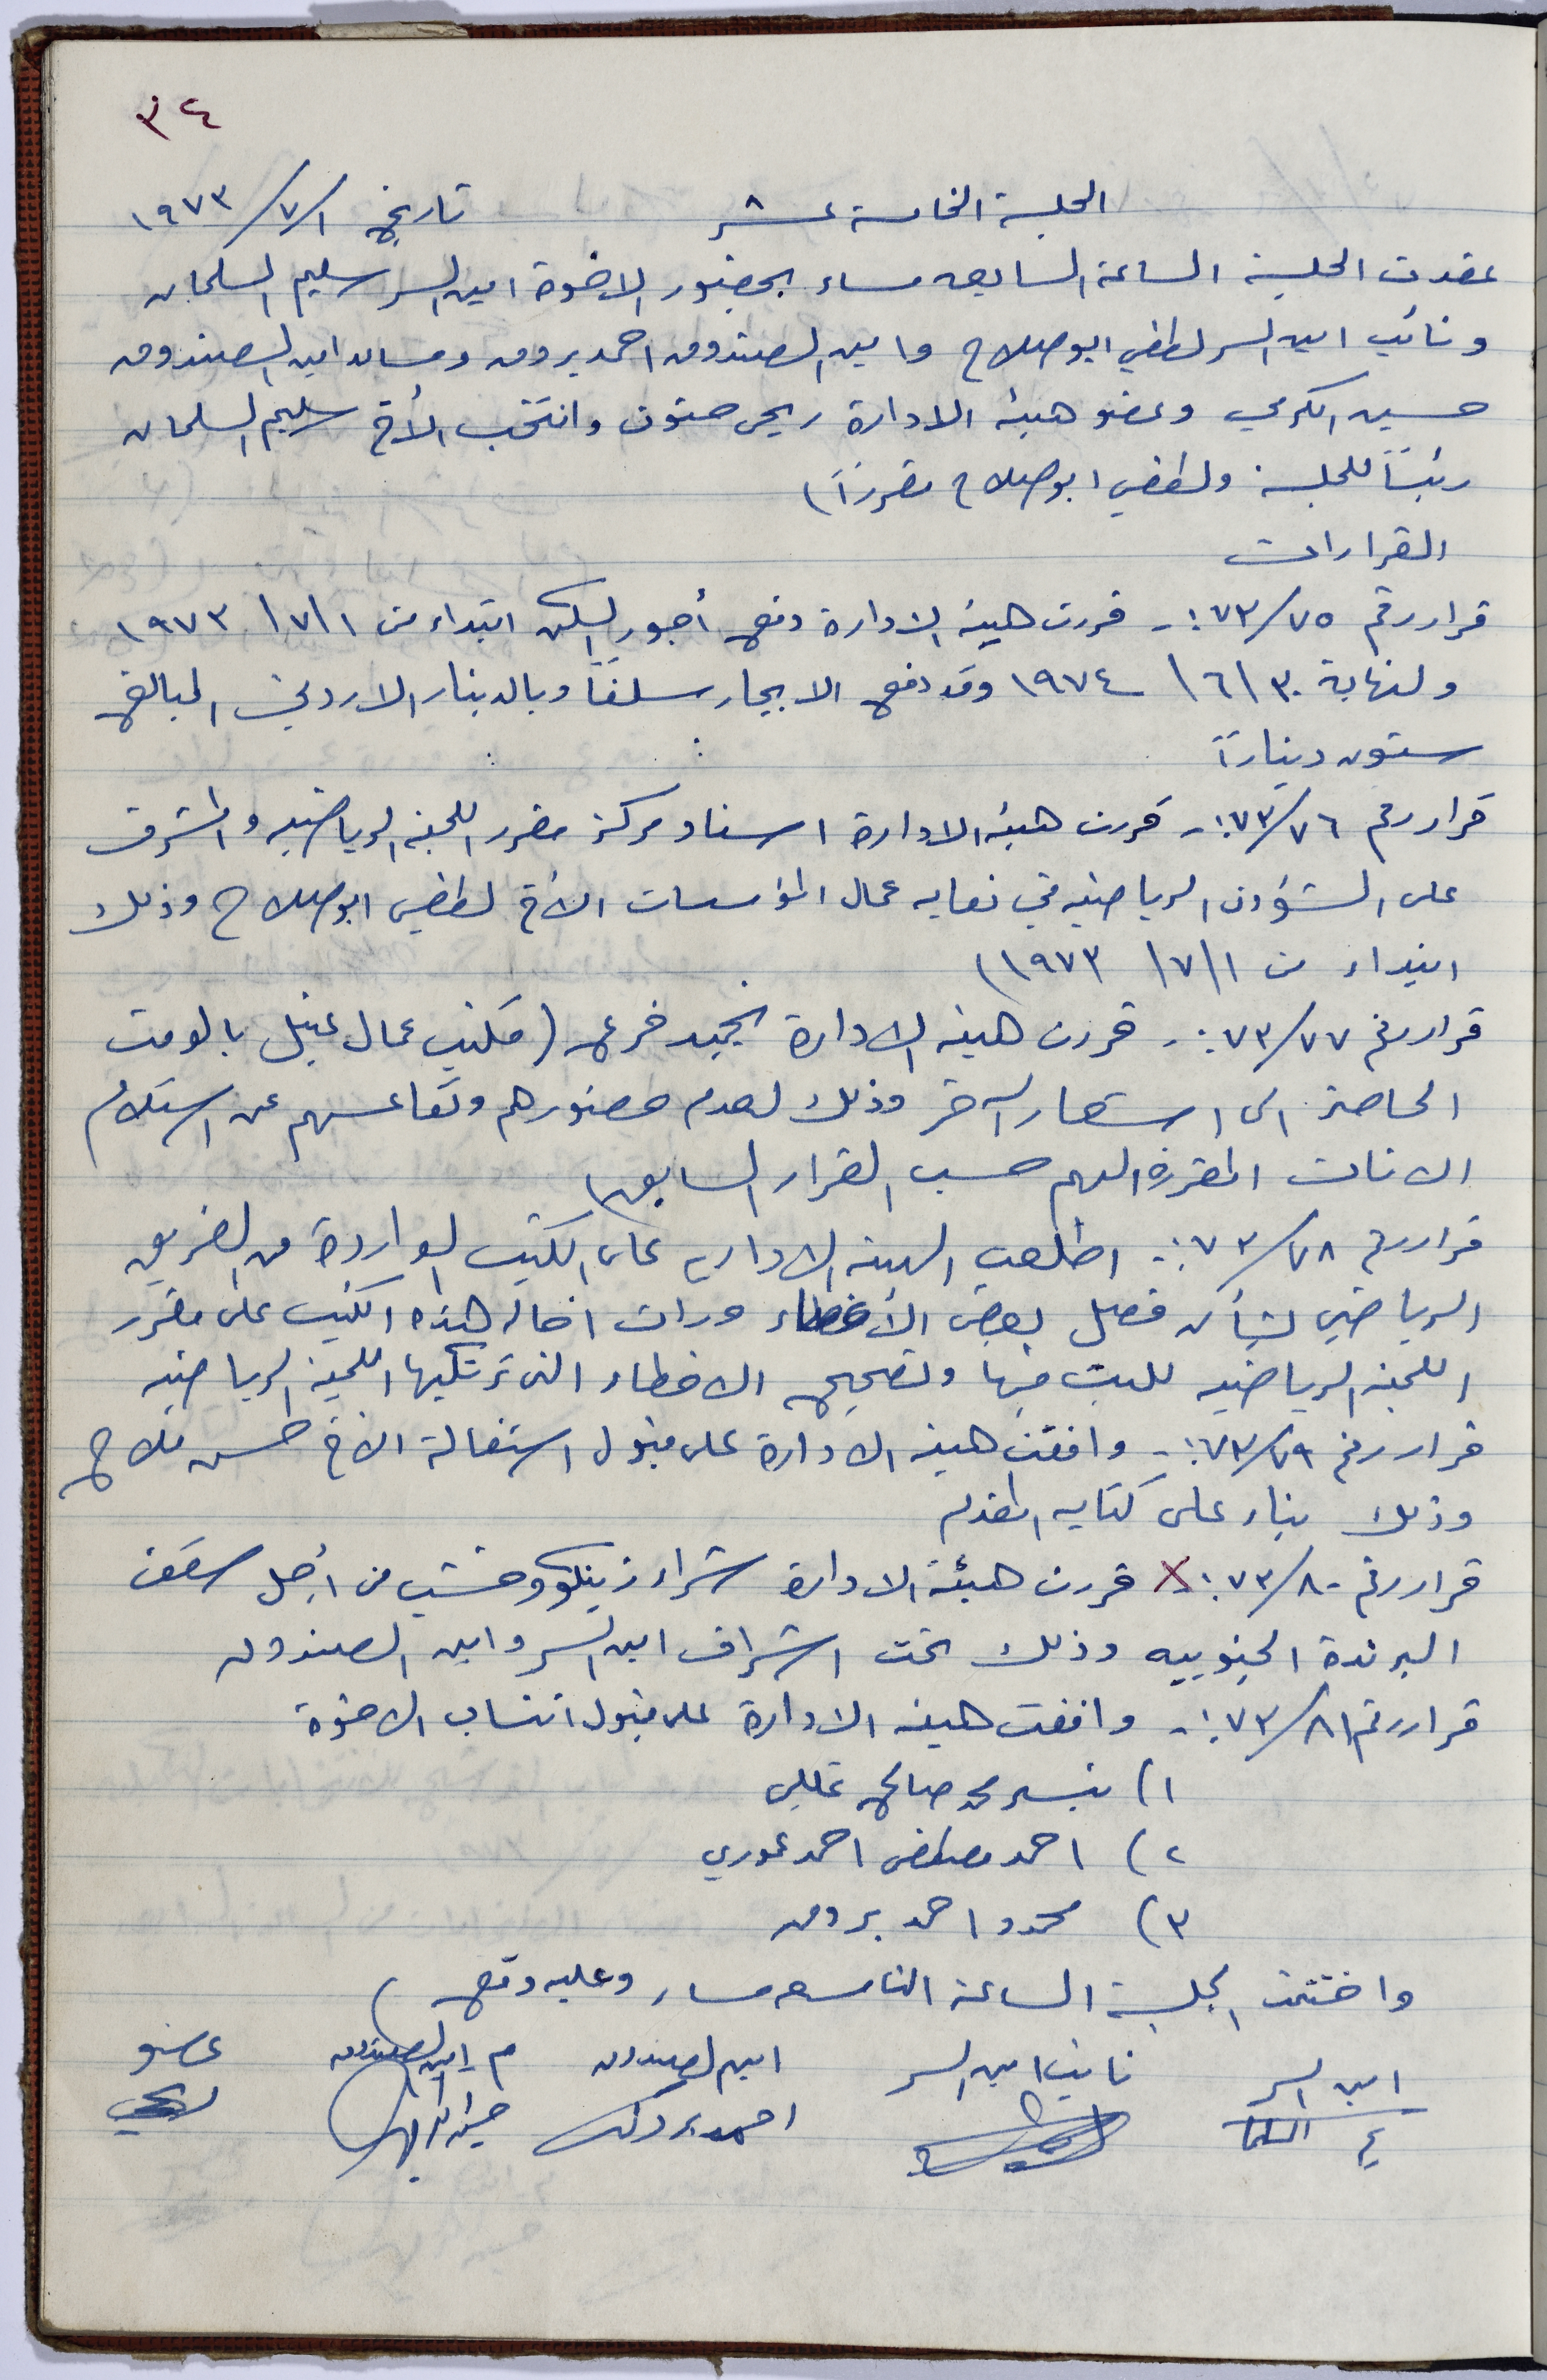 ٣٤
الجلسة الخامسة عشر تاريخ ١/٧/١٩٧٣
عقدت الجلسة الساعة السابعه مساء بحضور الاخوة امين السر سليم السلمان
ونائب امين السر لطفي ابو صلاح وامين الصندوق احمد بروق ومساعد امين الصندوق
حسين الكرمي وعضو هيئة الادارة ريحي حتون وانتخب الأخ سليم السلمان
رئيساً للجلسة ولطفي ابو صلاح مقرراً)
القرارات
قرار رقم ٧٥/٧٣:- قررت هيئة الادارة دفع أجور السكن ابتداء من ١/٧/١٩٧٣
ولنهاية ٣٠/٦/١٩٧٤ وقد دفع الايجار سلفاً وبالدينار الاردني البالغ
ستون ديناراً
قرار رقم ٧٦/٧٣:- قررت هيئة الادارة اسناد مركز مقرر اللجنة الرياضيه والمشرف
على الشؤون الرياضيه في نقابه عمال المؤسسات الأخ لطفي ابو صلاح وذلك
ابتداء من ١/٧/١٩٧٣)
قرار رقم ٧٧/٧٣:- قررت هيئة الادارة تجميد فرع (مكتب عمال عتيل بالوقت
الحاضر الى اشعار آخر وذلك لعدم حضورهم وتقاعسهم عن استلام
الاثاث المقررة اليهم حسب القرار السابق)
قرار رقم ٧٨/٧٣:- اطلعت الهيئة الاداريه على الكتب الواردة من الفريق
الرياضي بشأن فصل بعض الأعضاء ورأت احالة هذه الكتب على مقرر
اللجنة الرياضيه للبت فيها وتصحيح الاخطاء التي ترتكبها اللجنة الرياضيه
قرار رقم ٧٩/٧٣:- وافقت هيئة الادارة على قبول استقالة الاخ حسن فلاح
وذلك بناء على كتابه المقدم
قرار رقم ٨٠/٧٣:- قررت هيئة الادارة شراء زينكو وخشب من أجل سقف
البرندة الجنوبيه وذلك تحت اشراف امين السر وامين الصندوق
قرار رقم ٨١/٧٣:- وافقت هيئة الادارة على قبول انتساب الاخوة
١) محمد صالح
٢) احمد مصطفى احمد عموري
٣) محمود احمد بروق
واختتمت الجلسة الساعة التاسعه مساء وعليه وقع)
امين السر نائب امين السر امين الصندوق م امين الصندوق عضو
احمد بروق